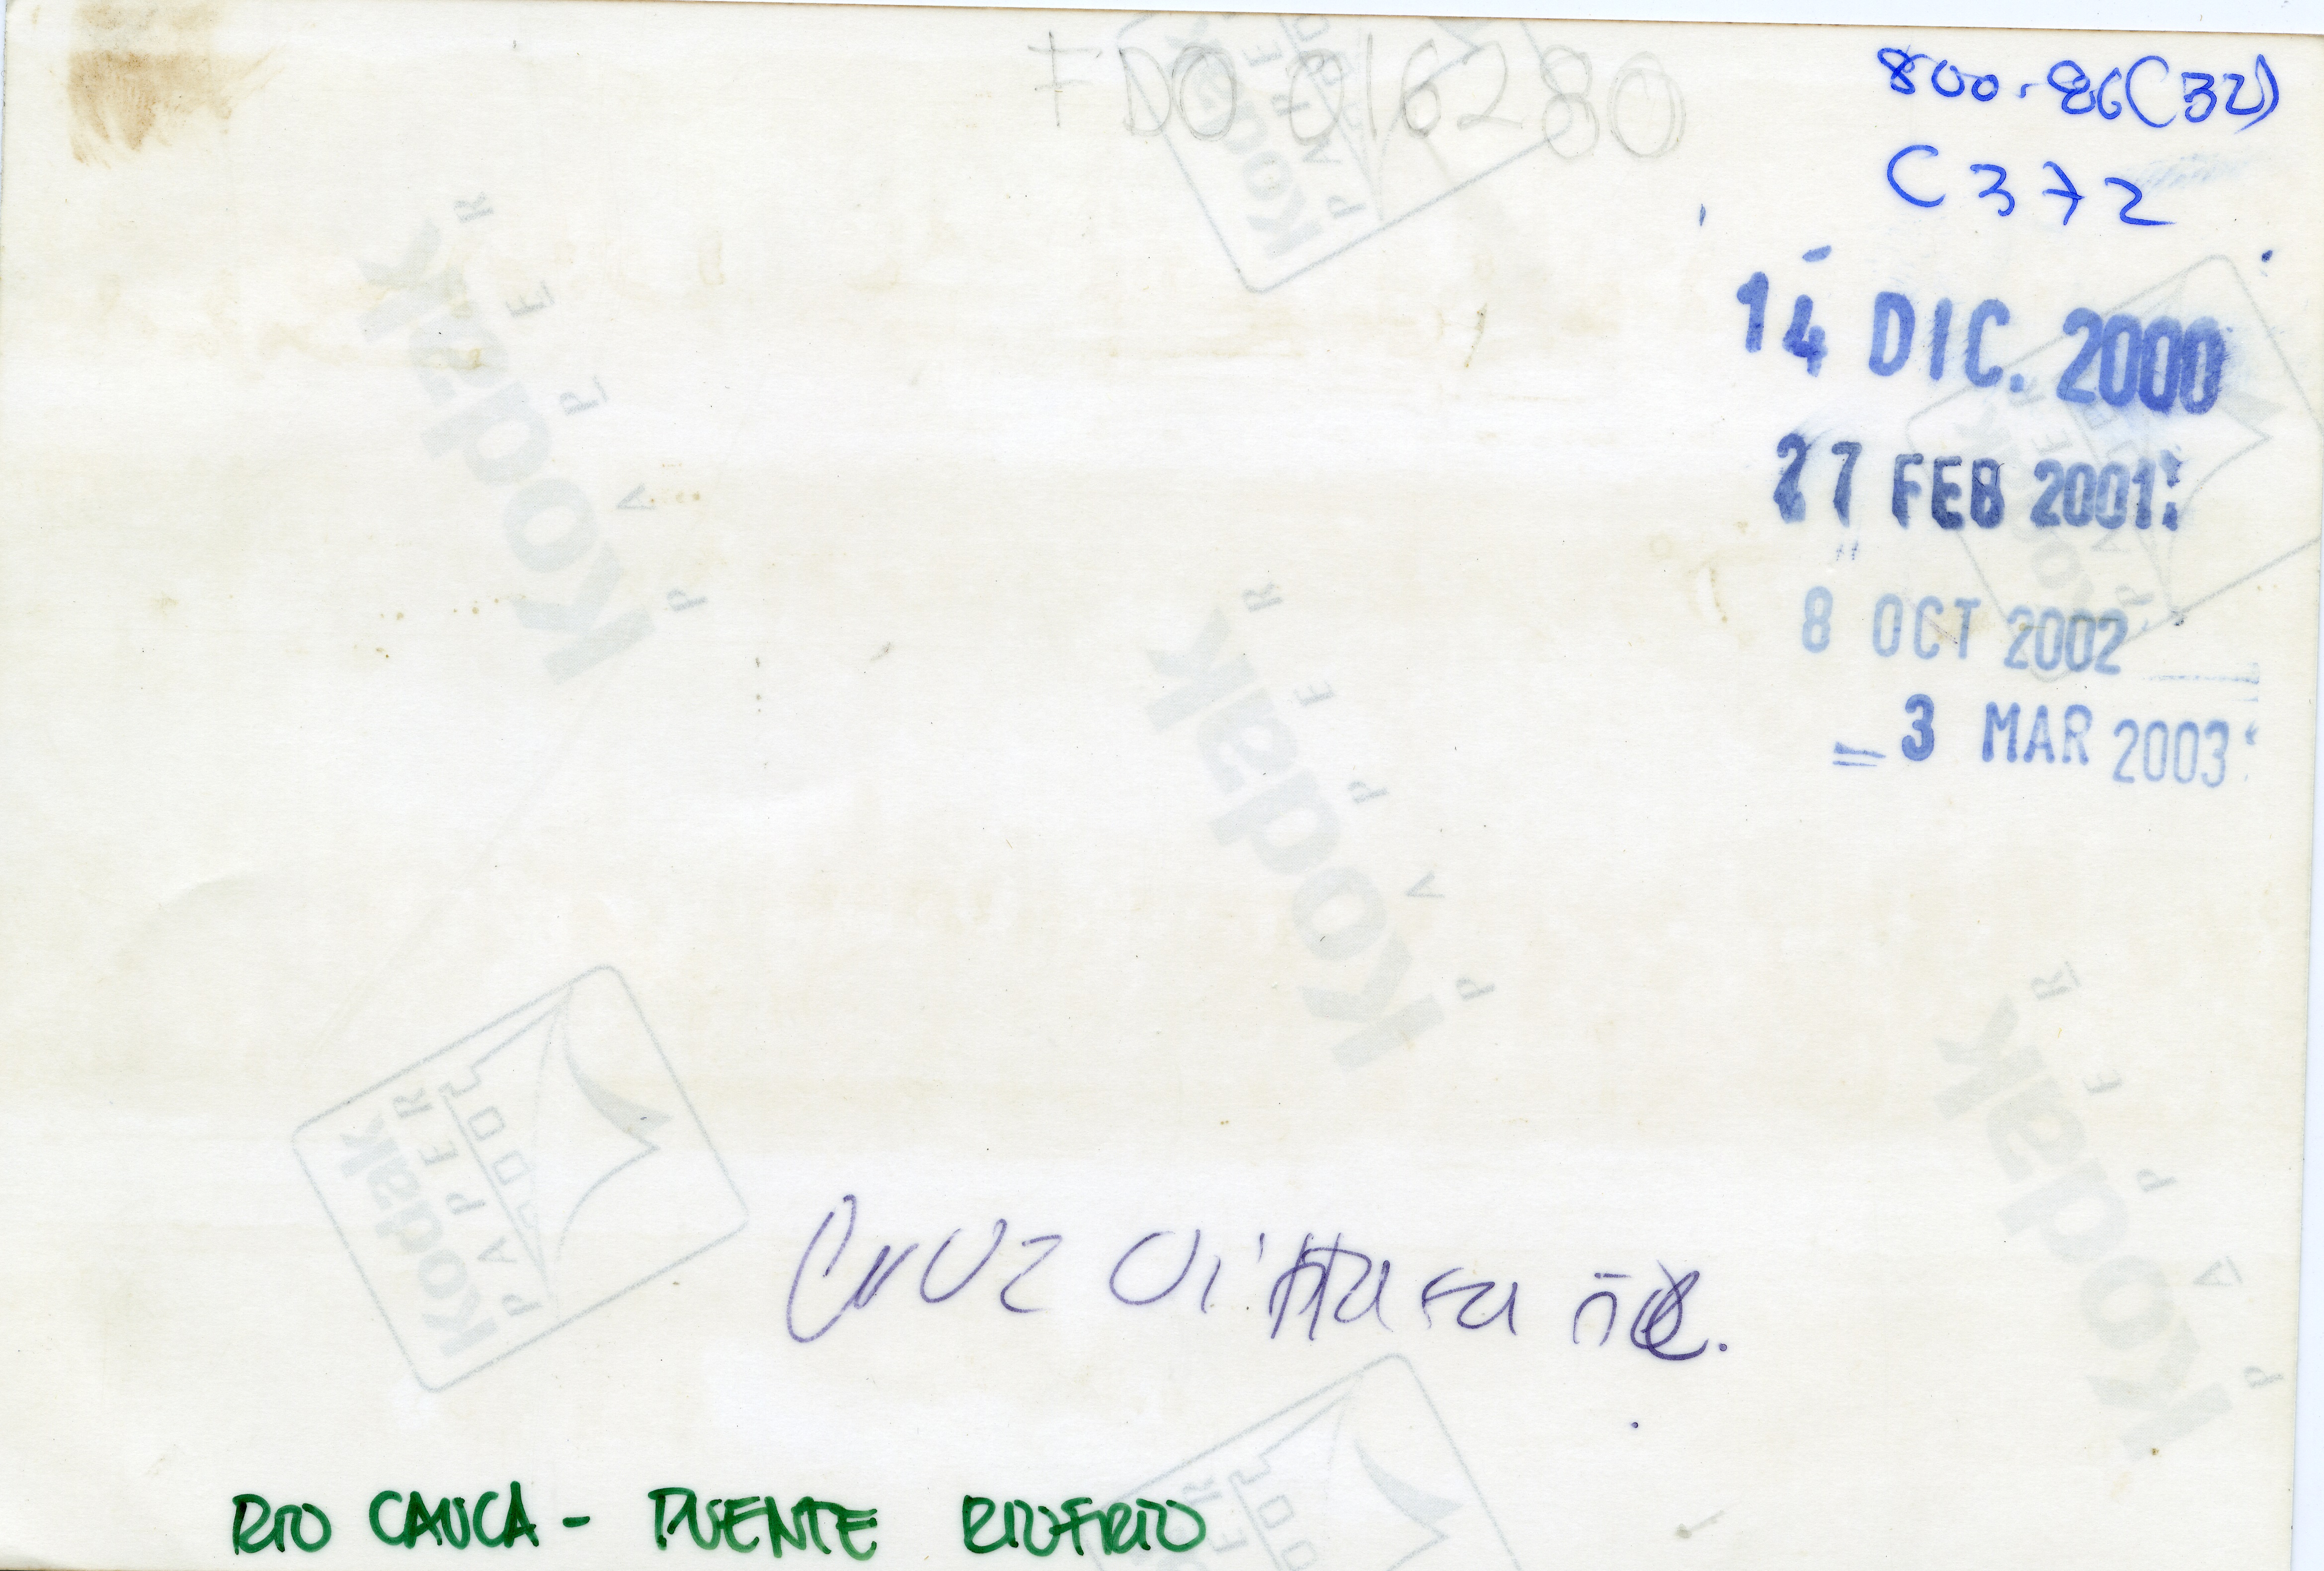 FDO 016280
800-86(32)
C372
14 DIC. 2000
27 FEB 2001
8 OCT 2002
3 MAR 2003
Kodak
PAPER
Kodak
PAPER
Kodak
PAPER
Kodak
PAPER
Cruz
RIO CAUCA - PUENTE RIOFRIO